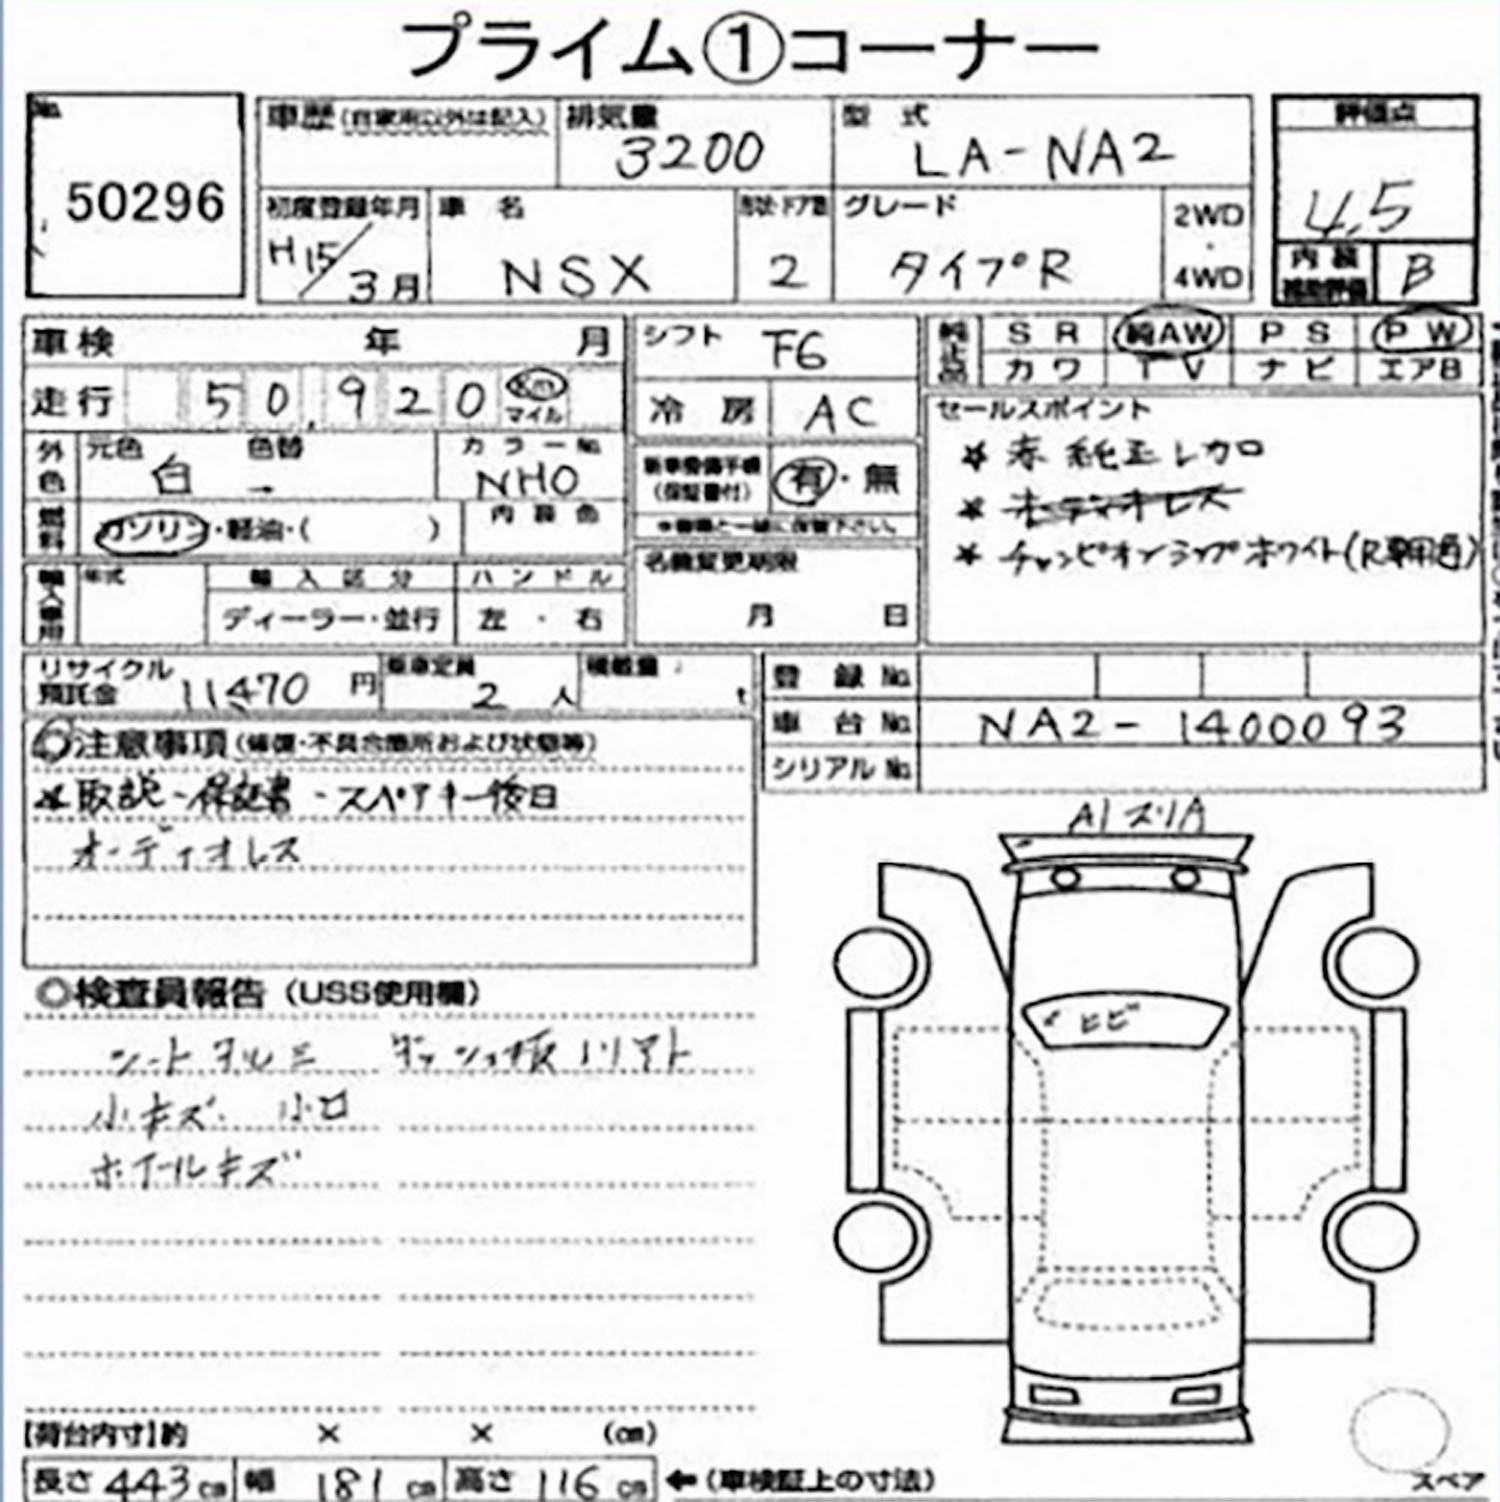 プライム①コーナー
No.
50296
車歴 (自家用以外は記入)
排気量
3200
型 式
LA-NA2
評価点
4.5
初度登録年月
H15/3月
車 名
NSX
形状・ドア数
2
グレード
タイプR
2WD
・
4WD
内装
補助評価
B
車検 年 月
シフト F6
純正品
SR 純AW PS PW
カワ TV ナビ エアB
走行 50,920 km マイル
冷房 AC
セールスポイント
★ 赤 純正レカロ
★ オーディオレス
★ チャンピオンシップホワイト(R専用色)
外色
元色 色替
白 →
カラーNo.
NHO
新車整備手帳
(保証書付)
有・無
燃料
ガソリン・軽油・( )
内装色
※書類と一緒に保管下さい。
名義変更期限
月 日
輸入車用
年式
輸入区分
ディーラー・並行
ハンドル
左・右
リサイクル
預託金 11470 円
乗車定員
2 人
積載量
t
登録No.
車台No. NA2-1400093
シリアルNo.
◎注意事項 (修復・不具合箇所および状態等)
★取説-保証書-スペアキー後日
オーディオレス
A1 スリA
ヒビ
◎検査員報告 (USS使用欄)
シートヨルミ ダッシュ板ソリアト
小キズ. 小凹
ホイールキズ
【荷台内寸】約 × × (cm)
長さ 443 cm 幅 181 cm 高さ 116 cm ←(車検証上の寸法)
スペア